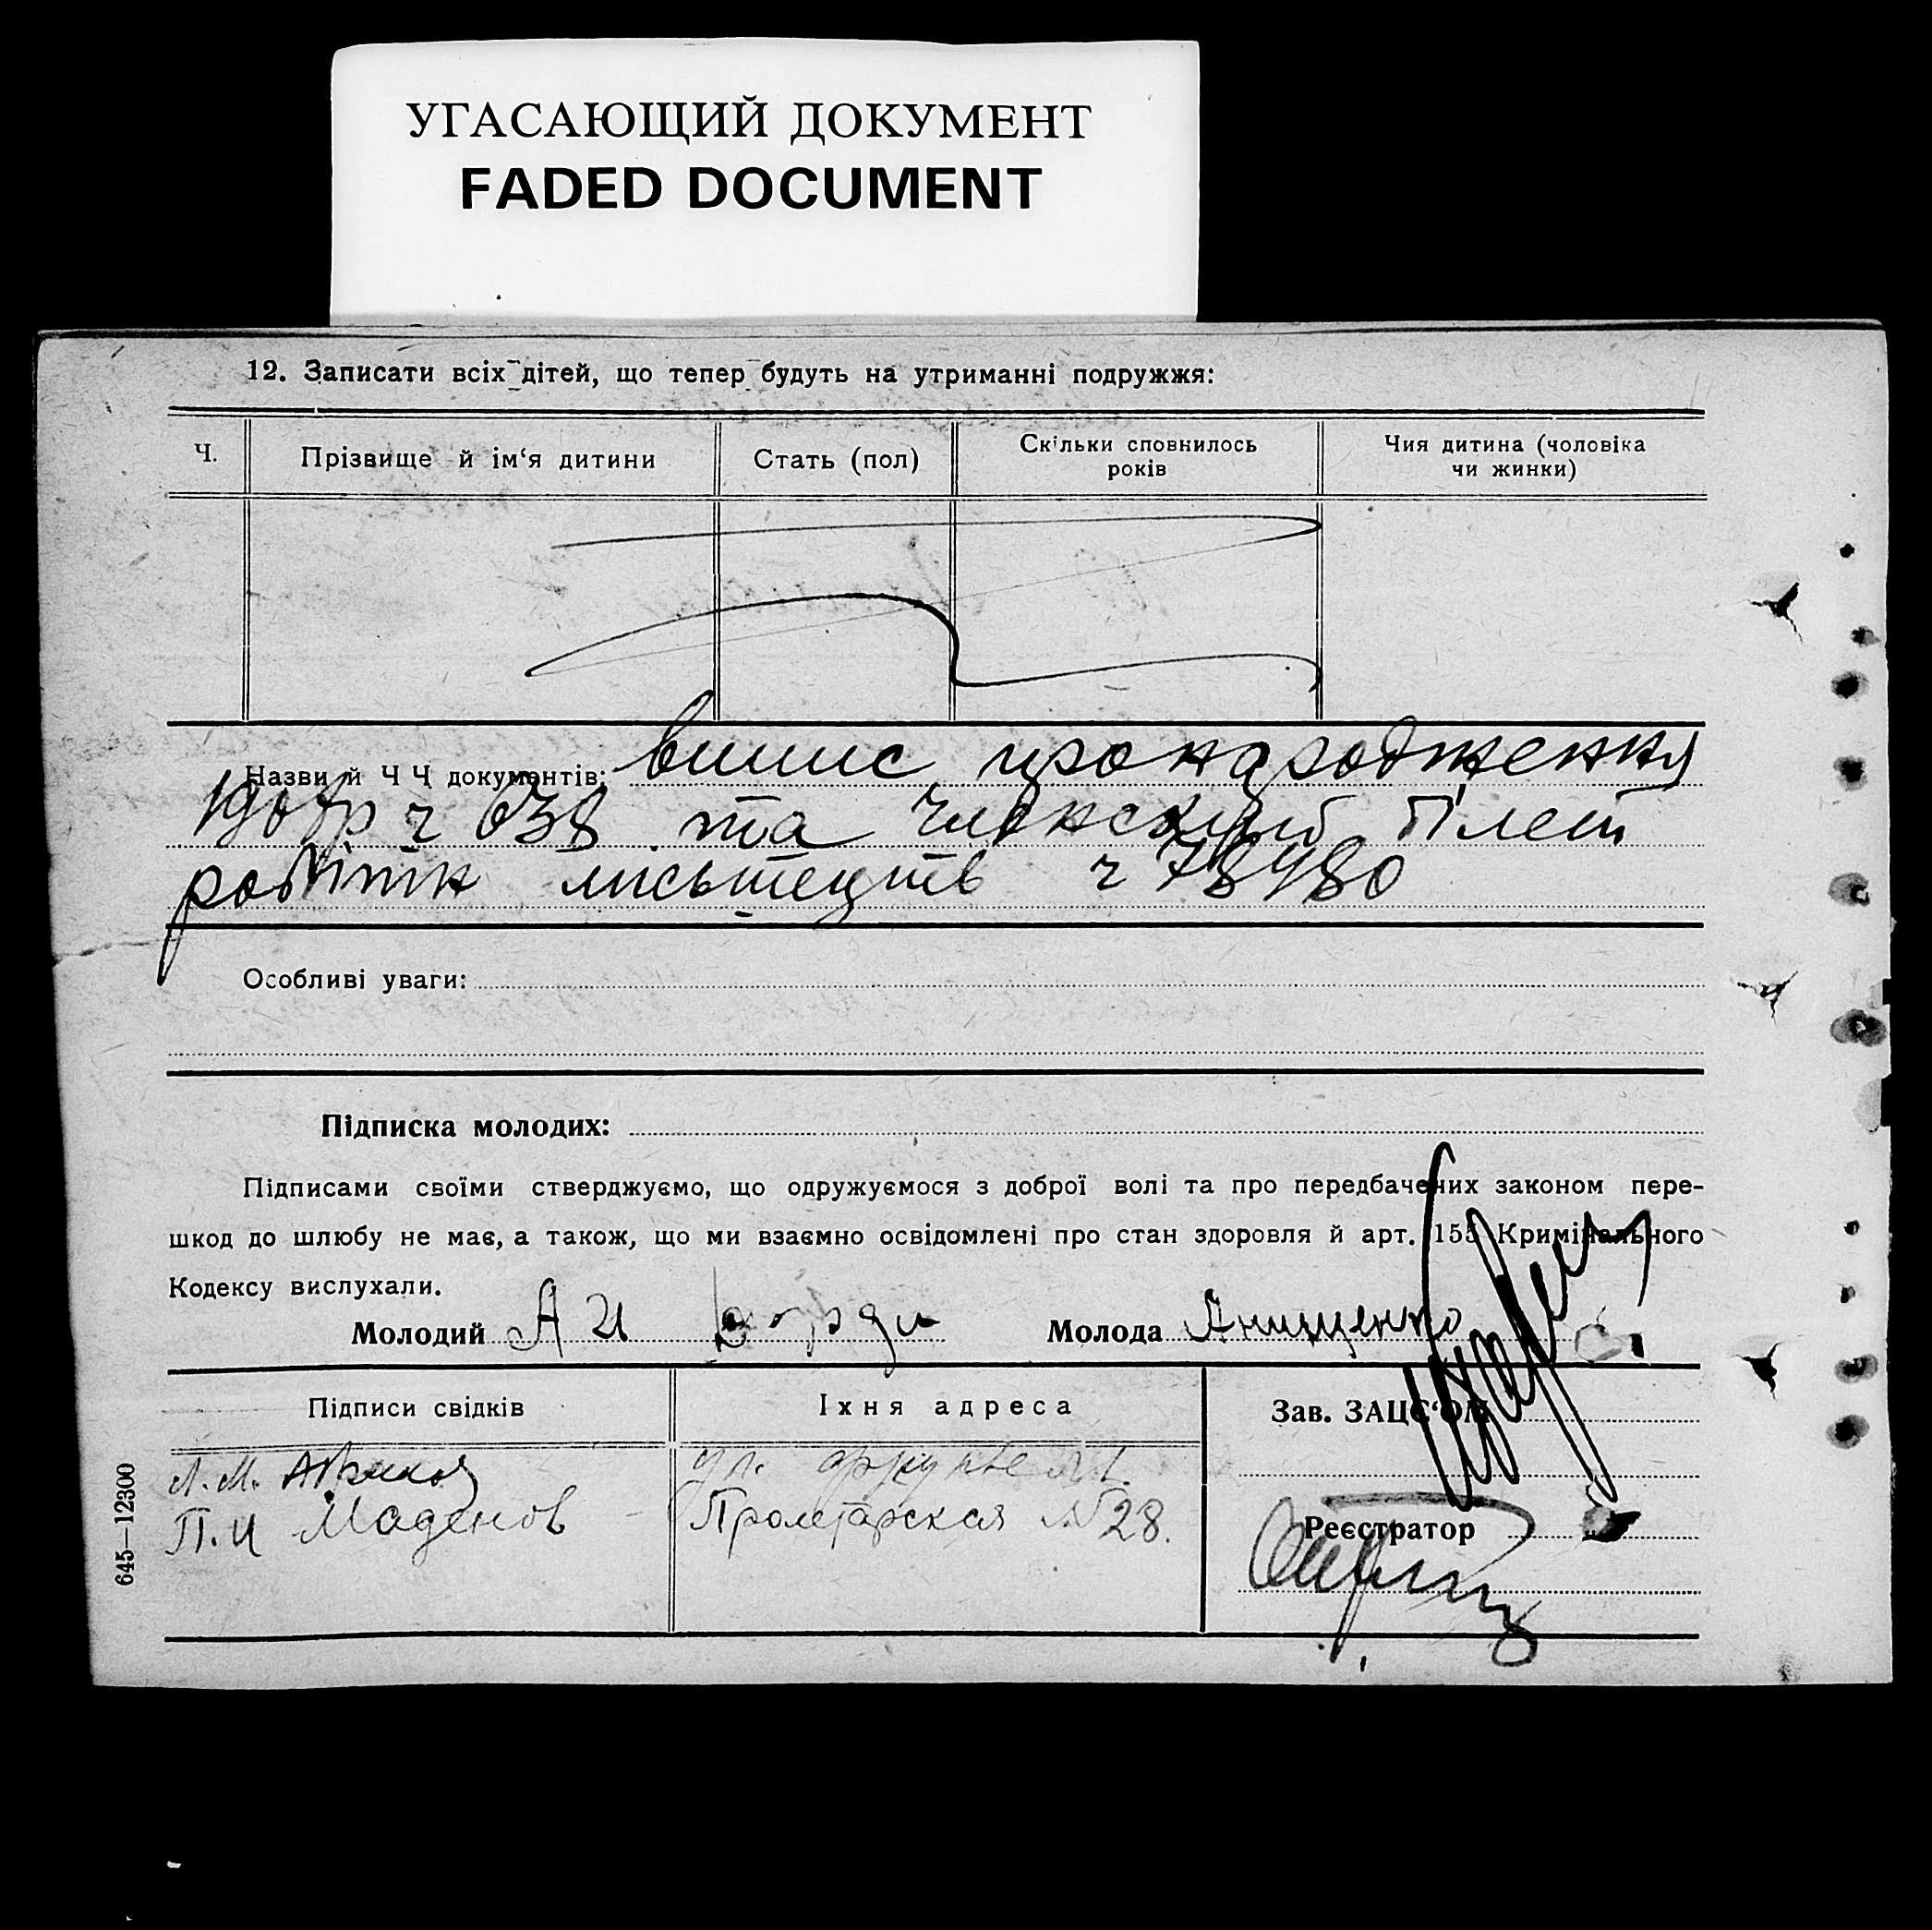 УГАСАЮЩИЙ ДОКУМЕНТ
FADED DOCUMENT
12. Записати всіх дітей, що тепер будуть на утриманні подружжя:
Ч.
Прізвище й ім‘я дитини
Стать (пол)
Скільки сповнилось
років
Чия дитина (чоловіка
чи жинки)
Назви й Ч Ч документів: випис про народження
ч 638 та членский білет
робітн мисьтецтв ч 78480
Особливі уваги:
Підписка молодих:
Підписами своїми стверджуємо, що одружуємося з доброї волі та про передбачених законом пере-
шкод до шлюбу не має, а також, що ми взаємно освідомлені про стан здоровля й арт. 155 Кримінального
Кодексу вислухали.
Молодий А И
Молода Анищенко
Підписи свідків
Їхня адреса
Зав. ЗАЦС‘ОМ
Л. М.
ул. Фрунзе №1.
П. И Маденов
Пролетарская № 28.
Реєстратор
645—12300